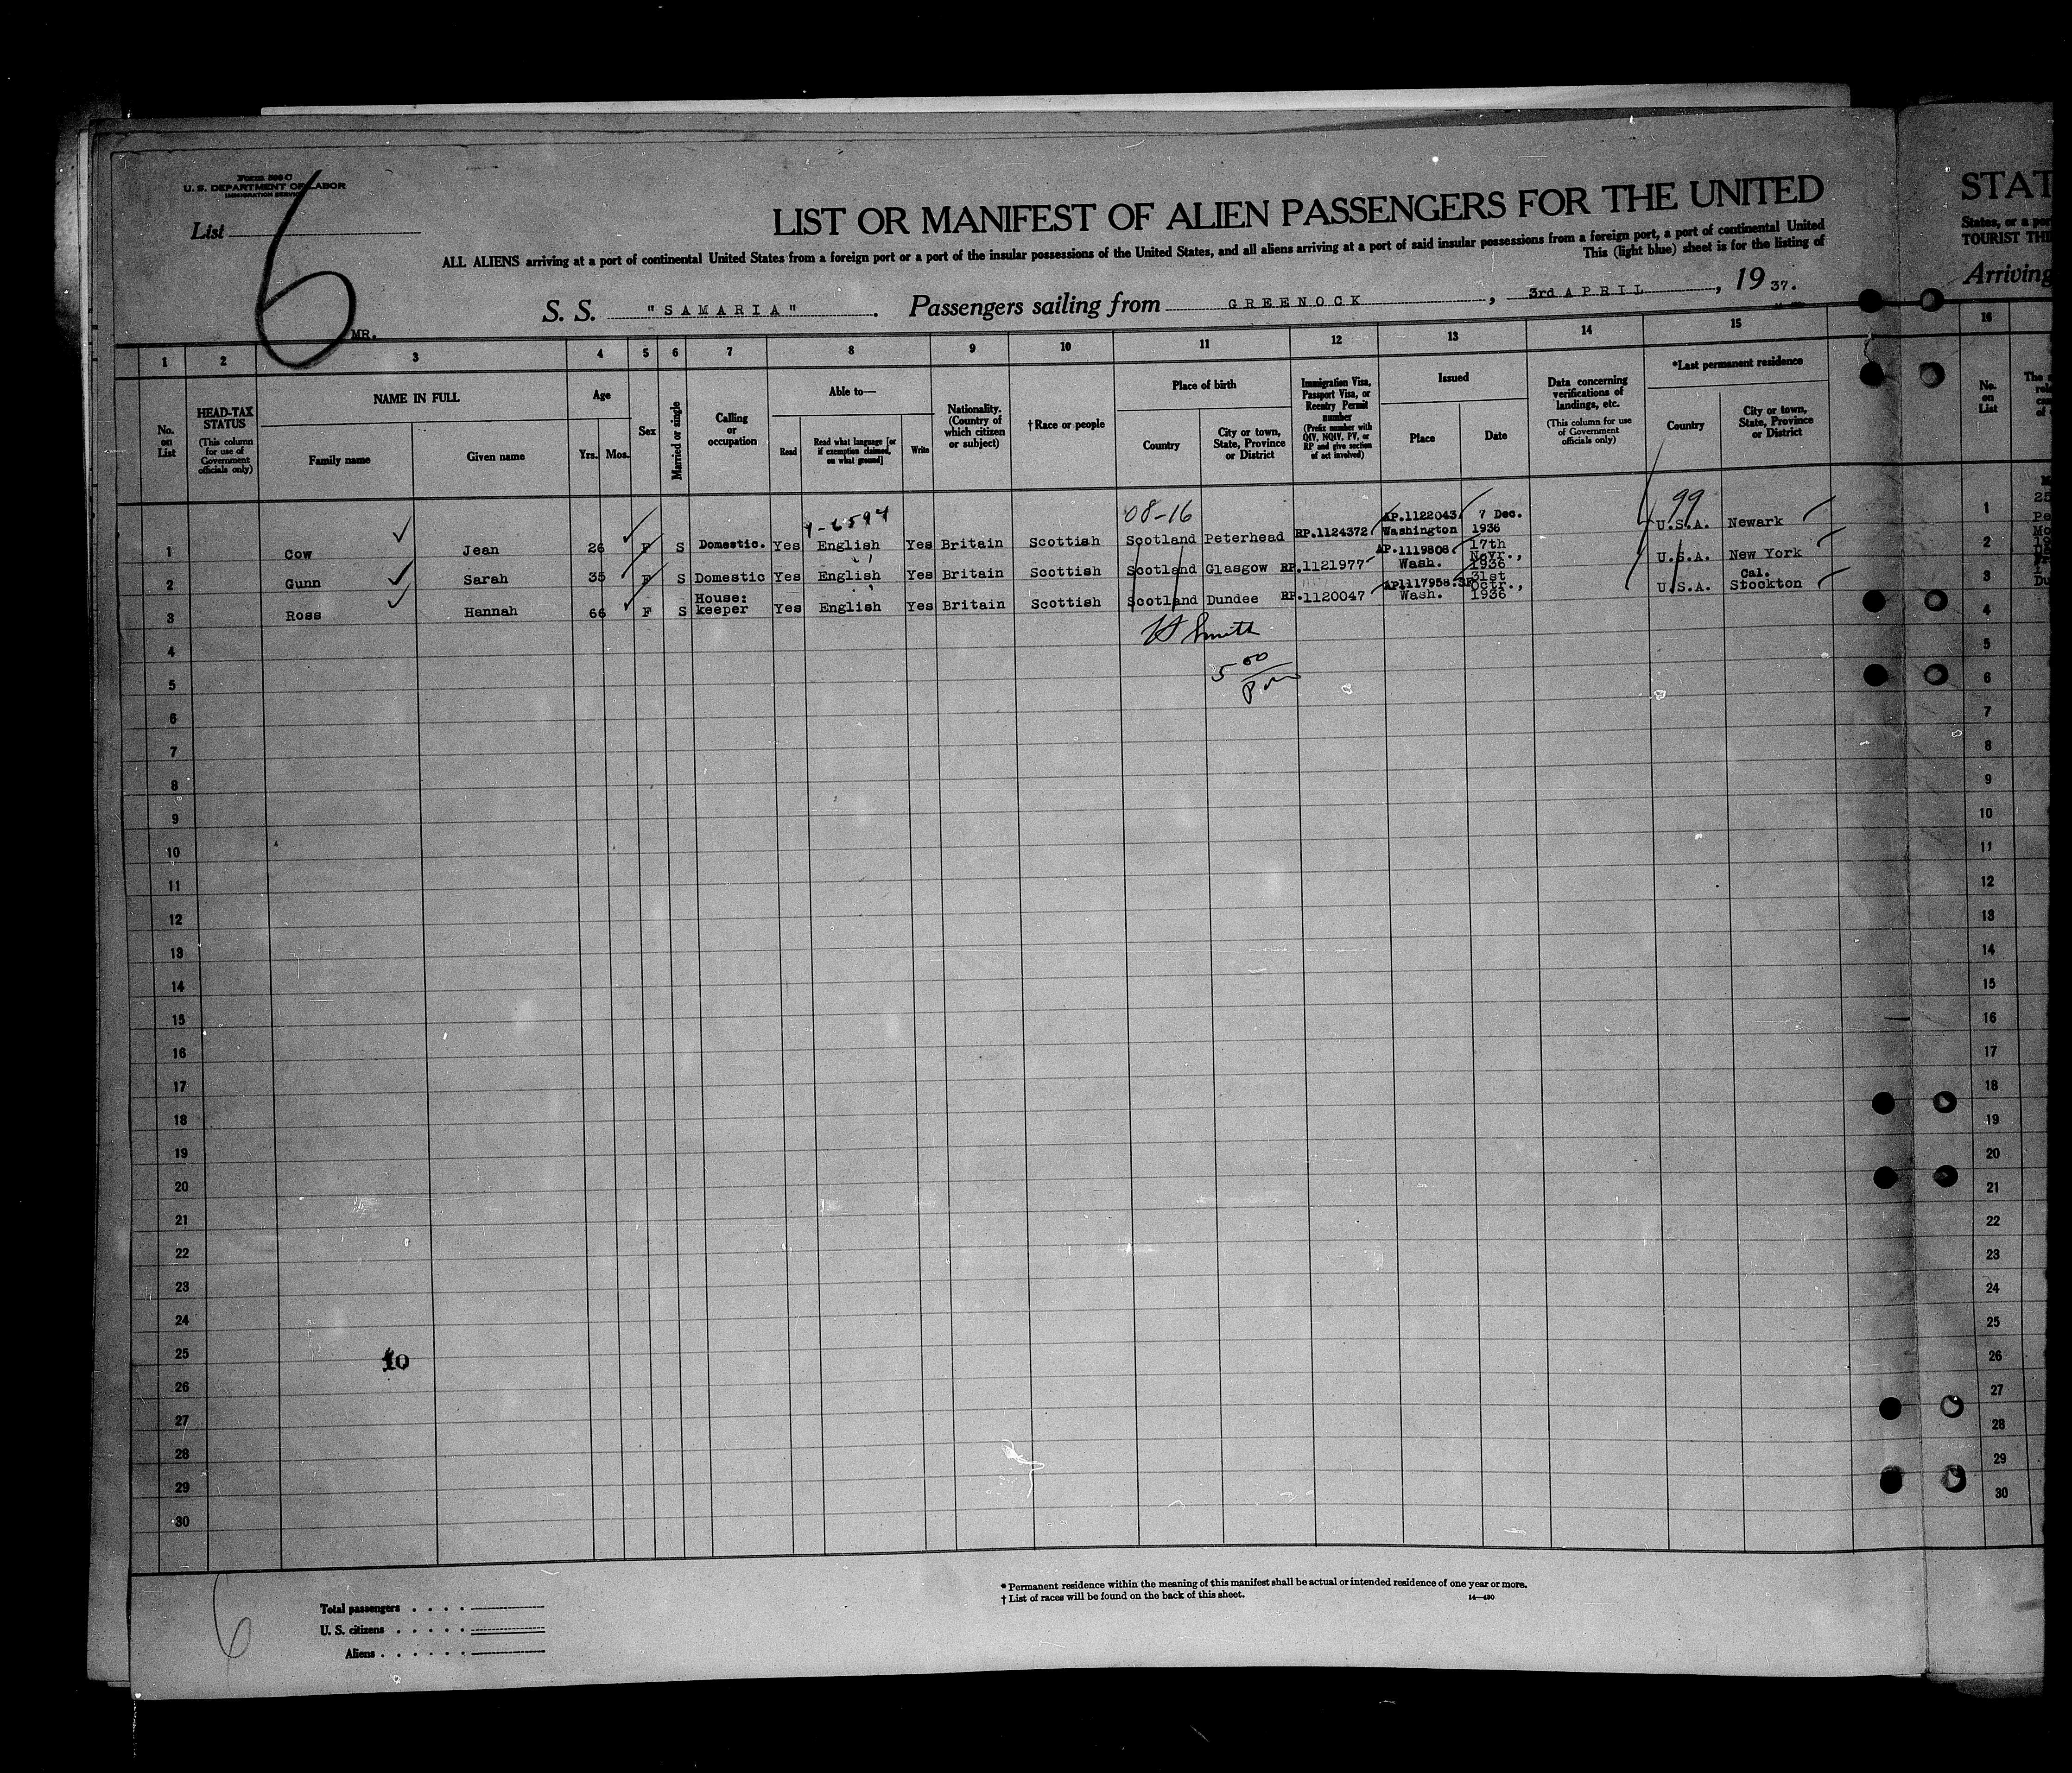 Form 500 C
U. S. DEPARTMENT OF LABOR
IMMIGRATION SERVICE
List 6
LIST OR MANIFEST OF ALIEN PASSENGERS FOR THE UNITED
ALL ALIENS arriving at a port of continental United States from a foreign port or a port of the insular possessions of the United States, and all aliens arriving at a port of said insular possessions from a foreign port, a port of continental United
This (light blue) sheet is for the listing of
S. S. "SAMARIA". Passengers sailing from GREENOCK, 3rd APRIL, 19 37.
MR.
1 2 3 4 5 6 7 8 9 10 11 12 13 14 15
No. on List
HEAD-TAX STATUS (This column for use of Government officials only)
NAME IN FULL
Family name Given name
Age Yrs. Mos.
Sex
Married or single
Calling or occupation
Able to—
Read Read what language [or if exemption claimed, on what ground] Write
Nationality. (Country of which citizen or subject)
†Race or people
Place of birth
Country City or town, State, Province or District
Immigration Visa, Passport Visa, or Reentry Permit number (Prefix number with QIV, NQIV, PV, or RP and give section of act involved)
Issued
Place Date
Data concerning verifications of landings, etc. (This column for use of Government officials only)
*Last permanent residence
Country City or town, State, Province or District
08-16 99
1 Cow Jean 26 F S Domestic. Yes English Yes Britain Scottish Scotland Peterhead RP.1124372 AP.1122043 Washington 7 Dec. 1936 U.S.A. Newark
2 Gunn Sarah 35 F S Domestic Yes English Yes Britain Scottish Scotland Glasgow RP.1121977 AP.1119808 Wash. 17th Novr., 1936 U.S.A. New York
3 Ross Hannah 66 F S House: keeper Yes English Yes Britain Scottish Scotland Dundee RP.1120047 AP1117958 Wash. 31st Octr., 1936 U.S.A. Cal. Stockton
Smith
5 00
P m
4
5
6
7
8
9
10
11
12
13
14
15
16
17
18
19
20
21
22
23
24
25
10
26
27
28
29
30
6
Total passengers
U. S. citizens
Aliens
* Permanent residence within the meaning of this manifest shall be actual or intended residence of one year or more.
† List of races will be found on the back of this sheet. 14—430
STAT
States, or a por
TOURIST THI
Arriving
16
No. on List
The
1
2
3
4
5
6
7
8
9
10
11
12
13
14
15
16
17
18
19
20
21
22
23
24
25
26
27
28
29
30